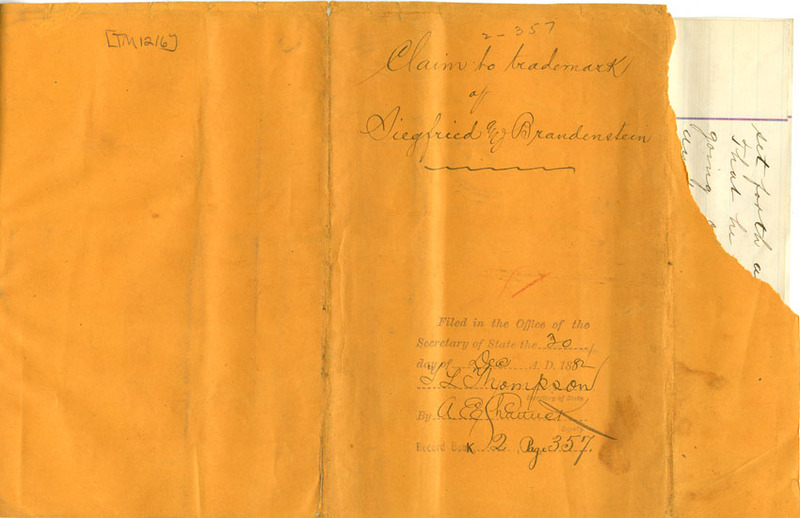 [TM1216]
2-357
Claim to trademark
of
Siegfried & Brandenstein
Filed in the Office of the
Secretary of State the 30
day of Dec A. D. 1882
T L Thompson
Secretary of State
By A E
Deputy
Record Book 2 Page 357.
set forth a
That he
going